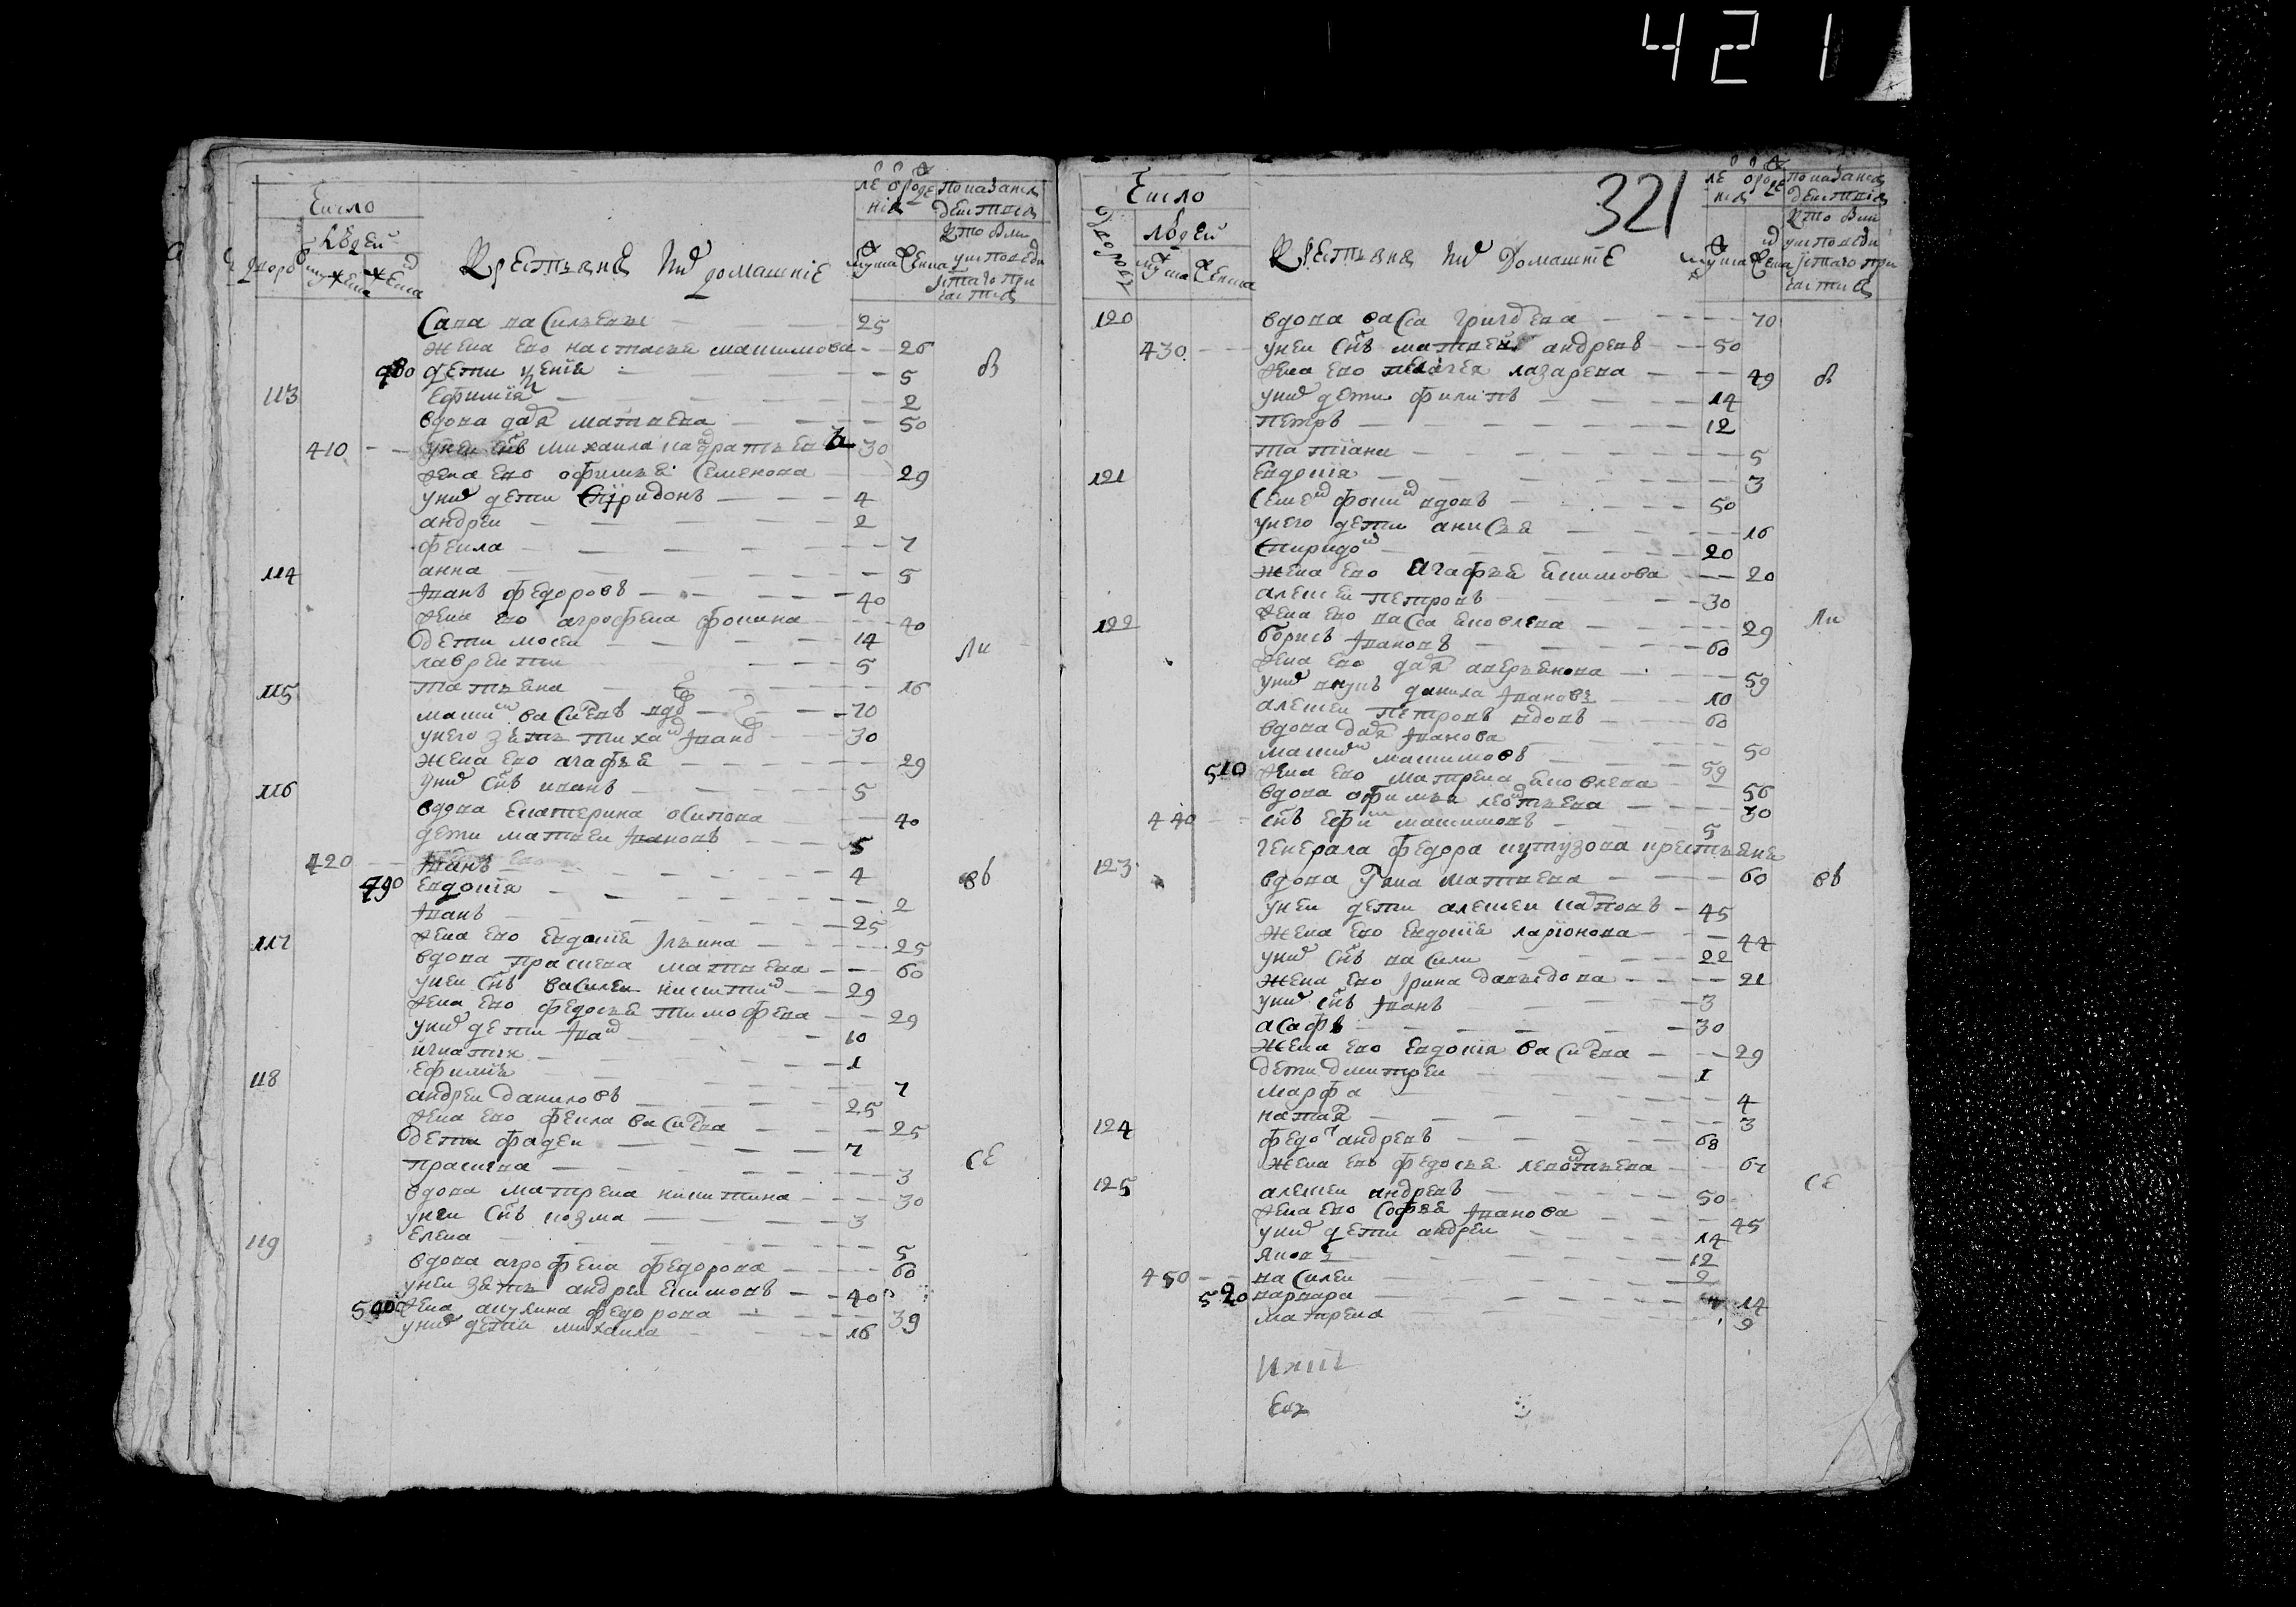 421
Число
людей
дворо
мужеска
женска
Крестьяня и их домашние
лет от рождения
мужеска
женска
показания действия кто были у исповеди и святаго причастия
Сава василевъ 25
жена ево настасья максимова 26
480 дети
5
113
ефимия 2
вдова дарья матвеева 50
410 у неи снъ михаила
30
жена ево офимья семенова 29
у них дети спиридонъ 4
андреи 2
фекла 7
114
анна 5
иванъ федоровъ 40
жена ево агрофена фокина 40
дети мосеи 14
лаврентии 5
115
татьяна 16
максим васильевъ вдов 70
у него зять
иванов 30
жена ево агафья 29
116
у них снъ иванъ 5
вдова екатерина осипова 40
дети матвеи ивановъ 5
420 иванъ 4
490 евдокия 2
иванъ 25
117
жена ево евдокия ильина 25
вдова прасковья матвеева 60
у неи снъ василеи никитин 29
жена ево федосья тимофеева 29
у них дети иван 10
игнатии 1
118
ефимия 7
андреи даниловъ 25
жена ево фекла васильева 25
дети фадеи 7
3
вдова матрена никитина 30
у неи снъ козма 3
119
елена 5
вдова агрофена федорова 60
у неи зять андреи екимовъ 40
500 жена акулина федорова 39
у них дети михаила 16
в
ли
вв
се
321
Число
дворовъ
людеи
мужска
женска
Крестьяня и их домашние
лет от рождения
мужеска
женска
показания действия кто были у исповеди и святаго причастия
120
вдова васса григорева 70
430 у неи снъ матвеи андреевъ 50
жена ево пелагея лазарева 49
у них дети филипъ 14
петръ 12
татиана 5
121
евдокия 3
семен фокин вдовъ 50
у него дети анисья 16
спиридон 20
жена ево агафья екимова 20
алексеи петровъ 30
122
жена ево васса яковлева 29
борисъ ивановъ 60
жена ево дарья аверьянова 59
у них внукъ данила ивановъ 10
алексеи петровъ вдовъ 60
вдова дарья иванова 50
максим максимовъ 59
510 жена ево матрена яковлева 56
вдова офимья леонтьева 30
440 снъ ефим максимовъ 5
генерала федора кутузова крестьяне
123
вдова
матвеева 60
у неи дети алексеи карповъ 45
жена ево евдокия ларионова 44
у них снъ васили 22
жена ево ирина давыдова 21
у них снъ иванъ 3
асафъ 30
жена ево евдокия васильева 29
дети дмитреи 1
марфа 4
наталья 3
124
федот андреевъ 68
жена ево федосья леонтьева 67
125
алексеи андреевъ 50
жена ево софья иванова 45
у них дети андреи 14
яковъ 12
450 василеи 2
520 варвара 14
матрена 9
в
ли
вв
се